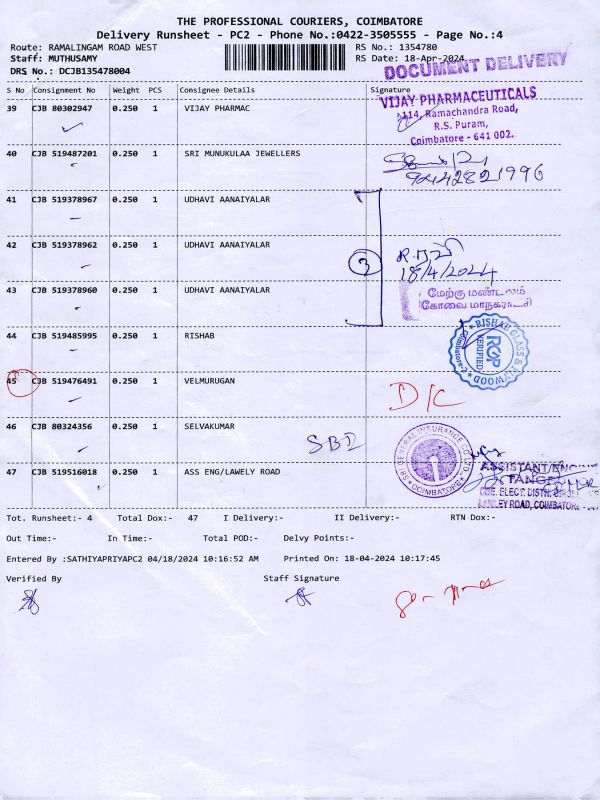 THE PROFESSIONAL COURIERS, COIMBATORE
Delivery Runsheet - PC2 - Phone No.:0422-3505555 - Page No.:4
Route: RAMALINGAM ROAD WEST RS No.: 1354780
Staff: MUTHUSAMY RS Date: 18-Apr-2024
DRS No.: DCJB135478004
DOCUMENT DELIVERY
S No Consignment No Weight PCS Consignee Details Signature
39 CJB 80302947 0.250 1 VIJAY PHARMAC
VIJAY PHARMACEUTICALS
114, Ramachandra Road,
R.S. Puram,
Coimbatore - 641 002.
40 CJB 519487201 0.250 1 SRI MUNUKULAA JEWELLERS
9442821996
41 CJB 519378967 0.250 1 UDHAVI AANAIYALAR
42 CJB 519378962 0.250 1 UDHAVI AANAIYALAR
3
18/4/2024
43 CJB 519378960 0.250 1 UDHAVI AANAIYALAR
மேற்கு மண்டலம்
கோவை மாநகராட்சி
44 CJB 519485995 0.250 1 RISHAB
RISHAB GLASS & PLYWOOD
RGP
VERIFIED
Coimbatore-2
45 CJB 519476491 0.250 1 VELMURUGAN
D/C
46 CJB 80324356 0.250 1 SELVAKUMAR
SBI
SBI GENERAL INSURANCE CO LTD
COIMBATORE
47 CJB 519516018 0.250 1 ASS ENG/LAWELY ROAD
ASSISTANT
LAWLEY ROAD, COIMBATORE
Tot. Runsheet:- 4 Total Dox:- 47 I Delivery:- II Delivery:- RTN Dox:-
Out Time:- In Time:- Total POD:- Delvy Points:-
Entered By :SATHIYAPRIYAPC2 04/18/2024 10:16:52 AM Printed On: 18-04-2024 10:17:45
Verified By Staff Signature